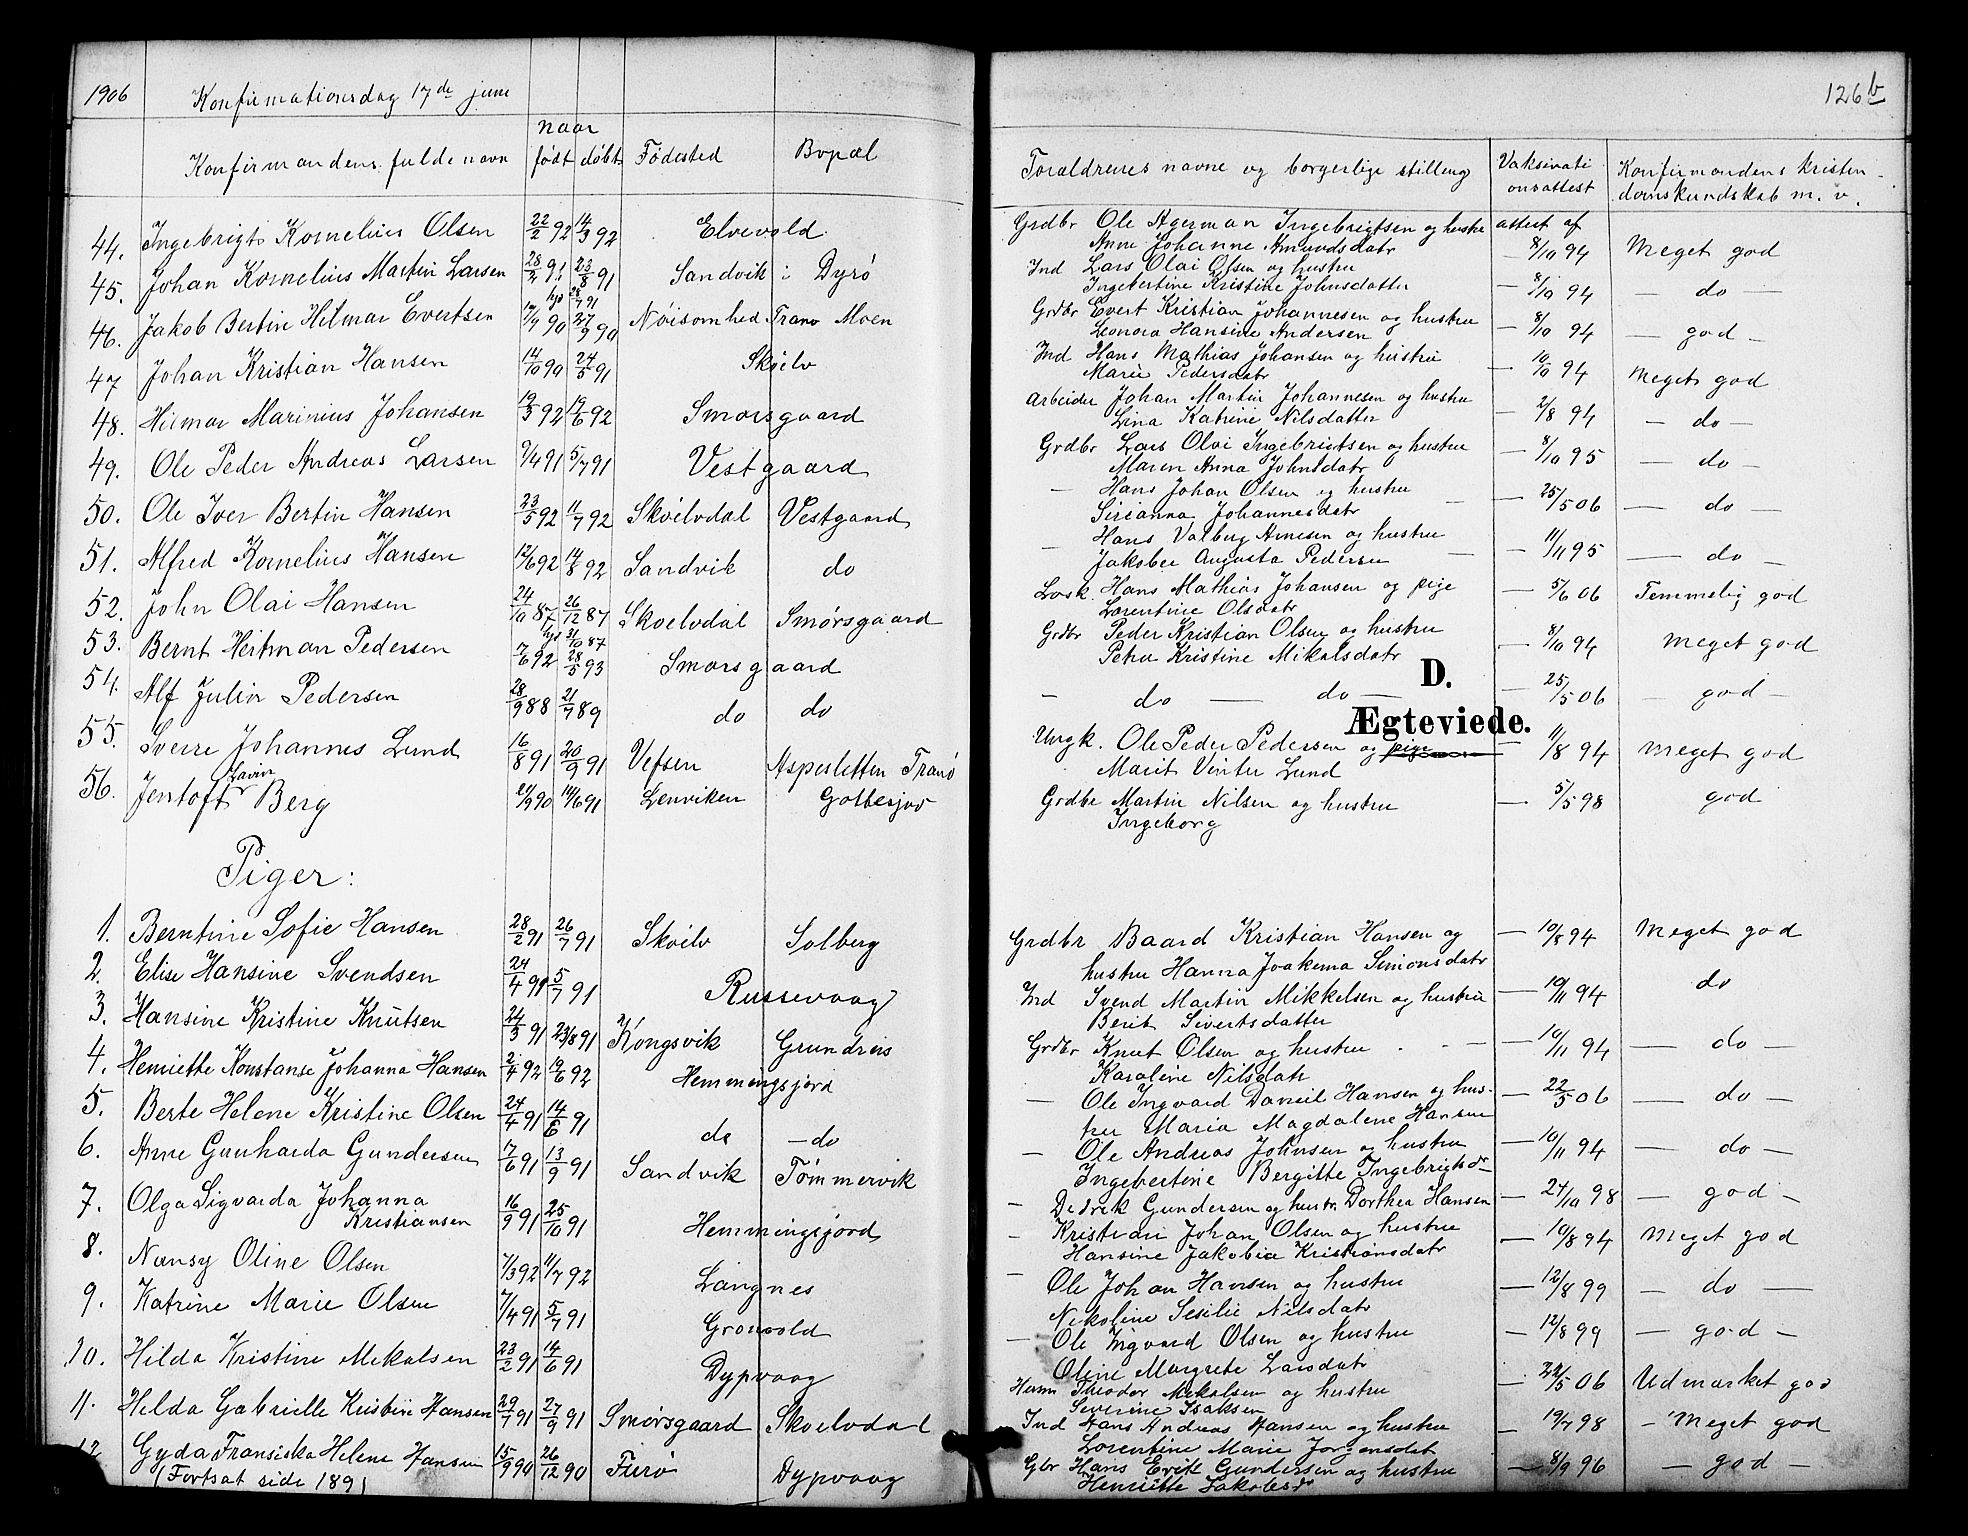 1906
Konfirmationsdag 17de juni
126 b
naar
Konfirmandens fulde navn født døbt Fødested Bopæl
Foraldrenes navne og borgerlige stilling Vaksinati Konfirmandens kristen-
onsattest domskundskab m. v.
44. Ingebrigt Kornelius Olsen 22/2 92 14/3 92 Elvevold
Grdbr Ole Agerman Ingebrigtsen og hustru attest af
Anne Johanne Amundsdatr — 8/10 94 Meget god
45. Johan Kornelius Martin Larsen 91 23/8 91 Sandvik i Dyrø
Ind Lars Olai Olsen og hustru
Ingebertine Kristine Johnsdatter — 8/10 94 — do —
46. Jakob Bertin Hilmar Evertsen 90 27/9 90 Nøisomhed Tranø Moen
Grdbr Evert Kristian Johannesen og hustru
Leonora Hansine Andersen — 8/10 94 — god —
47 Johan Kristian Hansen 14/10 90 24/5 91 Skøelv
Ind Hans Mathias Johansen og hustru
Marie Pedersdatr — 94 Meget god
48. Hilmar Marinius Johansen 19/3 92 19/6 92 Smørsgaard
Arbeider Johan Martin Johannesen og hustru
Lina Katrine Nilsdatter — 2/8 94 — do —
49. Ole Peder Andreas Larsen 9/4 91 5/7 91 Vestgaard
Grdbr Lars Olai Ingebrigtsen og hustru
Maren Anna Johnsdatr — 8/10 95 — do —
50. Ole Iver Bertin Hansen 23/5 92 11/7 92 Skøelvdal Vestgaard
— Hans Johan Olsen og hustru
Sirianna Johannesdatr — 25/5 06 — do —
51. Alfred Kornelius Hansen 12/6 92 14/8 92 Sandvik do
— Hans Valberg Arnesen og hustru
Jakobee Augusta Pedersen — 11/11 95 — do —
52. John Olai Hansen 24/10 87 26/12 87 Skoelvdal Smørsgaard
Løsk Hans Mathias Johansen og pige
Lorentine Olsdatr — 5/6 06 Temmelig god
53. Bernt Heitman Pedersen 7/6 92 28/5 93 Smørsgaard
Grdbr Peder Kristian Olsen og hustru
Petra Kristine Mikalsdatr — 8/10 94 Meget god
54. Alf Julin Pedersen 28/9 88 21/7 89 do do
— do — do — 25/5 06 — god —
D.
Ægteviede.
55. Sverre Johannes Lund 16/8 91 20/9 91 Vefsen Aspesletten Tranø
Ungk. Ole Peder Pedersen og pige
Marit Vinter Lund — 11/8 94 Meget god
56. Jentoft Lavin Berg 90 14/6 91 Lenviken Gottesjord
Grdbr Martin Nilsen og hustru
Ingeborg — 5/5 98 god
Piger:
1. Berntine Sofie Hansen 28/2 91 26/7 91 Skøelv Solberg
Grdbr Baard Kristian Hansen og
hustru Hanna Joakema Simonsdatr — 10/8 94 Meget god
2. Elise Hansine Svendsen 24/4 91 5/7 91 Russevaag
Ind Svend Martin Mikkelsen og hustru
Berit Sivertsdatter — 19/11 94 do
3. Hansine Kristine Knutsen 24/3 91 23/8 91 Kongsvik Grundreis
Grdbr Knut Olsen og hustru
Karoline Nilsdatr — 10/11 94 — do —
4. Henriette Konstanse Johanna Hansen 2/4 92 19/6 92 Hemmingsjord
— Ole Ingvard Daneil Hansen og hus-
tru Maria Magdalene Hansen — 22/5 06 — do —
5. Berte Helene Kristine Olsen 24/4 91 14/6 91 do — do
— Ole Andreas Johnsen og hustru
Ingebertine Bergitte Ingebrigtsdr — 10/11 94 — do —
6. Anne Gunharda Gundersen 17/6 91 13/9 91 Sandvik Tømmervik
— Dedrek Gundersen og hustr. Dorthea Hansen — 24/10 98 — god —
7. Olga Sigvarda Johanna
Kristiansen 16/9 91 25/10 91 Hemmingsjord
— Kristian Johan Olsen og hustru
Hansine Jakobia Kristiansdatr — 10/8 94 Meget god
8. Nansy Oline Olsen 7/3 92 11/7 92 Langnes
— Ole Johan Hansen og hustru
Nikoline Sesilie Nilsdatr — 12/8 99 — do —
9. Katrine Marie Olsen 7/4 91 5/7 91 Gronvold
— Ole Ingvard Olsen og hustru
Oline Margrete Larsdatr — 12/8 99 — god —
10. Hilda Kristine Mikalsen 23/2 91 14/6 91 Dypvaag
Husm Theodor Mikalsen og hustru
Severine Isaksen — 22/5 06 Udmærket god
11. Helda Gabrielle Kristine Hansen 29/7 91 27/9 91 Smørsgaard Skoelvdal
Ind Hans Andreas Hansen og hustru
Lorentine Marie Jørgensdat — 19/7 98 — Meget god
12 Gyda Fransiska Helene Hansen 15/9 90 26/12 90 Furø Dypvaag
Gbr Hans Erik Gundersen og hustru
Henriette Jakobsdr — 8/9 96 — god —
(Fortsat side 189)